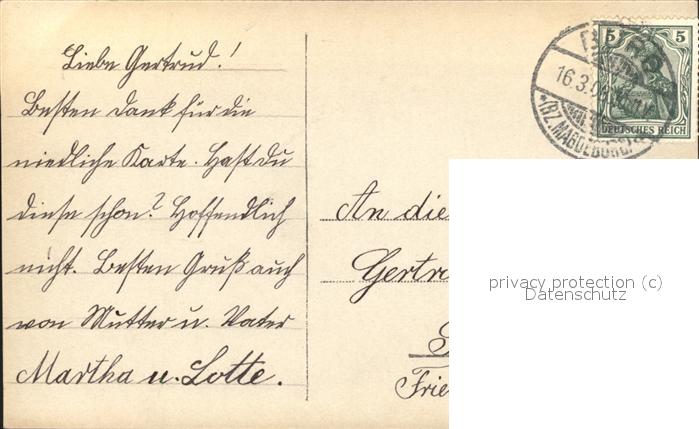 Liebe Gertrud!
Besten Dank für die
niedliche Karte. Hast du
diese schon? Hoffendlich
nicht. Besten Gruß auch
von Mutter u. Vater
Martha u. Lotte.
An die
Gertr
Frie
5 5
DEUTSCHES REICH
16.3.
*(BZ. MAGDEBURG)
privacy protection (c)
Datenschutz